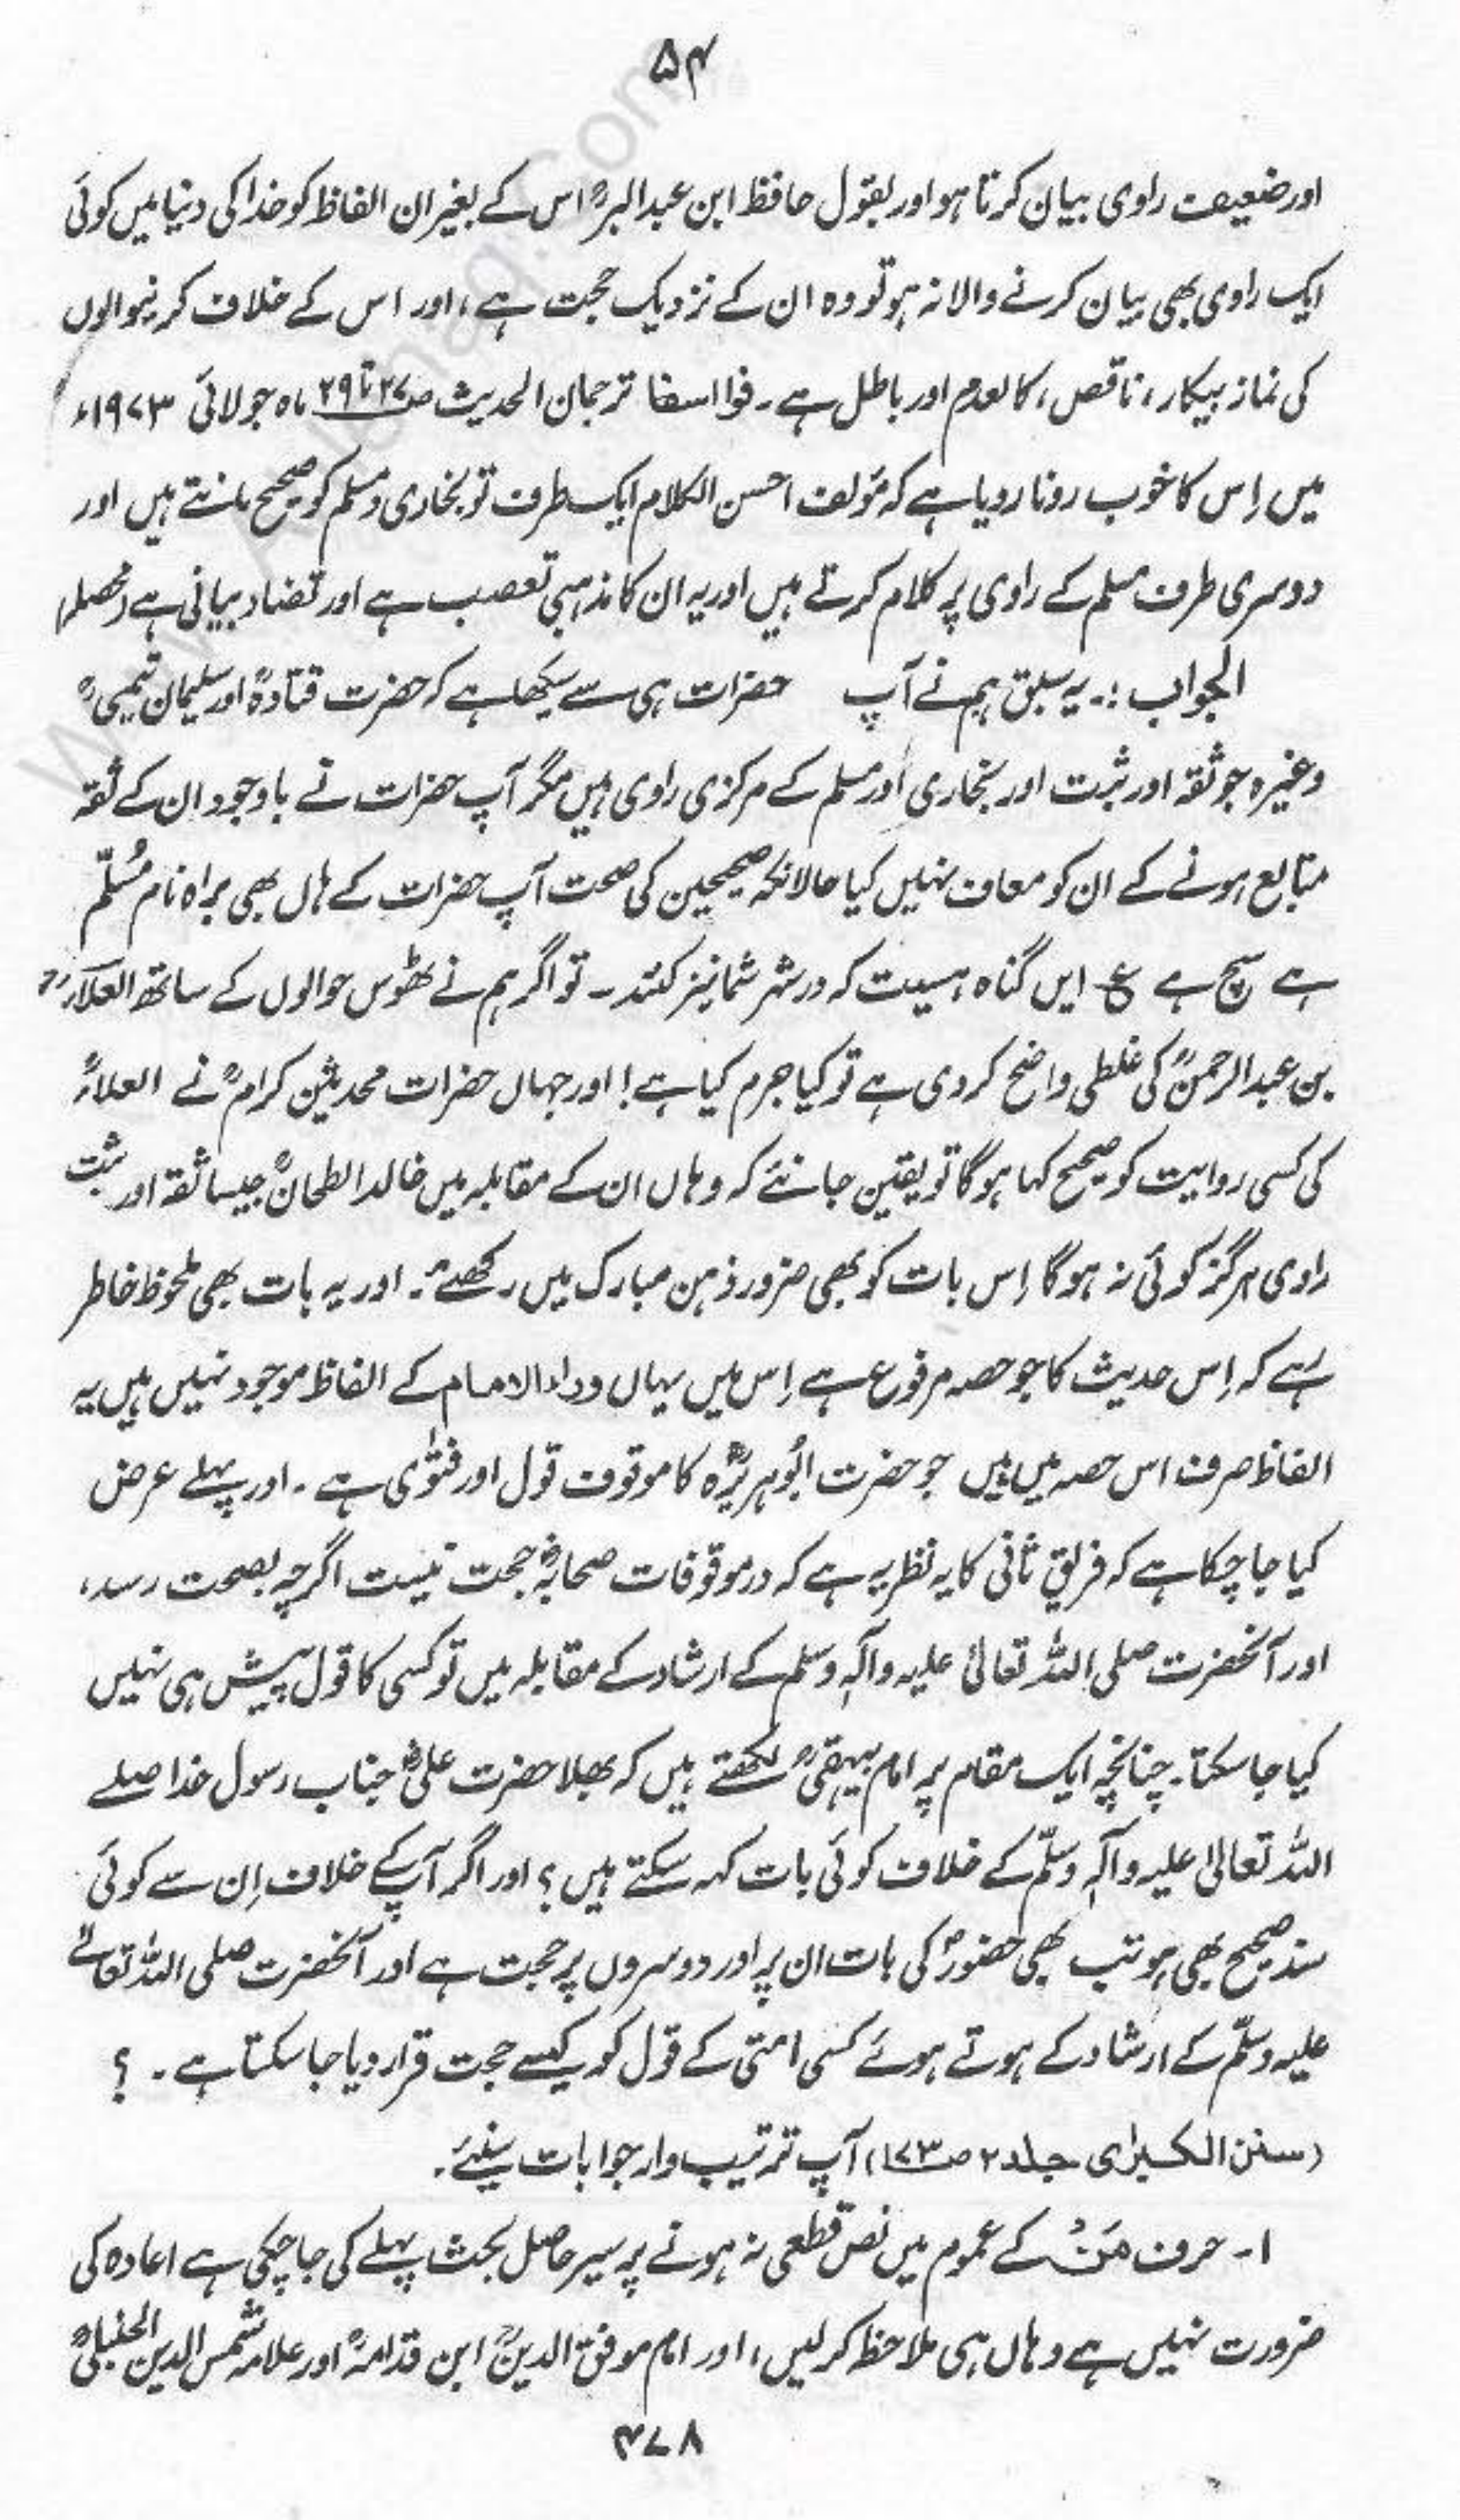 ۵۴
اور ضعیف راوی بیان کرتا ہو اور بقول حافظ ابن عبدالبرؒ اس کے بغیر ان الفاظ کو خدا کی دنیا میں کوئی
ایک راوی بھی بیان کرنے والا نہ ہو تو وہ ان کے نزدیک حجت ہے، اور اس کے خلاف کرنیوالوں
کی نماز بیکار، ناقص، کالعدم اور باطل ہے۔ فوا اسفا ترجمان الحدیث ص۲۷ تا ۲۹ ماہ جولائی ۱۹۷۳ء
میں اِس کا خوب رونا رویا ہے کہ مؤلف احسن الکلام ایک طرف تو بخاری و مسلم کو صحیح مانتے ہیں اور
دوسری طرف مسلم کے راوی پر کلام کرتے ہیں اور یہ ان کا مذہبی تعصب ہے اور تضاد بیانی ہے (محصلہ)
الجواب:۔ یہ سبق ہم نے آپ حضرات ہی سے سیکھا ہے کہ حضرت قتادہؒ اور سلیمان تیمیؒ
وغیرہ جو ثقہ اور ثبت اور بخاری اور مسلم کے مرکزی راوی ہیں مگر آپ حضرات نے باوجود ان کے ثقہ
متابع ہونے کے ان کو معاف نہیں کیا حالانکہ صحیحین کی صحت آپ حضرات کے ہاں بھی براہ نام مُسَلَّم
ہے سچ ہے ع ایں گناہ ہسیت کہ در شہر شما نیز کنند۔ تو اگر ہم نے ٹھوس حوالوں کے ساتھ العلاءؒ
بن عبدالرحمٰنؒ کی غلطی واضح کر دی ہے تو کیا جرم کیا ہے! اور جہاں حضرات محدثین کرامؒ نے العلاءؒ
کی کسی روایت کو صحیح کہا ہوگا تو یقین جانئے کہ وہاں ان کے مقابلہ میں خالد الطحانؒ جیسا ثقہ اور ثبت
راوی ہرگز کوئی نہ ہوگا اِس بات کو بھی ضرور ذہن مبارک میں رکھئے۔ اور یہ بات بھی ملحوظ خاطر
رہے کہ اِس حدیث کا جو حصہ مرفوع ہے اِس میں یہاں وراء الامام کے الفاظ موجود نہیں ہیں یہ
الفاظ صرف اس حصہ میں ہیں جو حضرت ابُوہریرہؓ کا موقوف قول اور فتوٰی ہے۔ اور پہلے عرض
کیا جا چکا ہے کہ فریق ثانی کا یہ نظریہ ہے کہ در موقوفات صحابہؓ حجت نیست اگرچہ بصحت رسد،
اور آنحضرت صلی اللہ تعالیٰ علیہ وآلہٖ وسلم کے ارشاد کے مقابلہ میں تو کسی کا قول پیش ہی نہیں
کیا جا سکتا۔ چنانچہ ایک مقام پر امام بیہقیؒ لکھتے ہیں کہ بھلا حضرت علیؓ جناب رسول خدا صلے
اللہ تعالیٰ علیہ وآلہٖ وسلّم کے خلاف کوئی بات کہہ سکتے ہیں؟ اور اگر آپ کے خلاف اِن سے کوئی
سند صحیح بھی ہو تب بھی حضورؐ کی بات ان پر اور دوسروں پر حجت ہے اور آنحضرت صلی اللہ تعالےٰ
علیہ وسلّم کے ارشاد کے ہوتے ہوئے کسی امتی کے قول کو کیسے حجت قرار دیا جا سکتا ہے۔ ؟
(سنن الکبرٰی جلد ۲ ص۱۷۳) آپ ترتیب وار جوابات سنیئے۔
۱۔ حرف مَنْ کے عموم میں نص قطعی نہ ہونے پر سیر حاصل بحث پہلے کی جا چکی ہے اعادہ کی
ضرورت نہیں ہے وہاں ہی ملاحظہ کر لیں، اور امام موفق الدینؒ ابن قدامہؒ اور علامہ شمس الدین الحنبلیؒ
۴۷۸